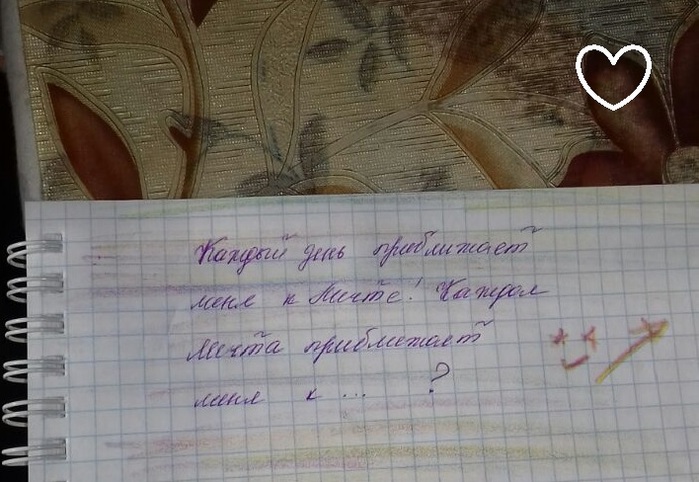 Каждый день приближает
меня к Мечте! Каждая
Мечта приближает
меня к ... ?